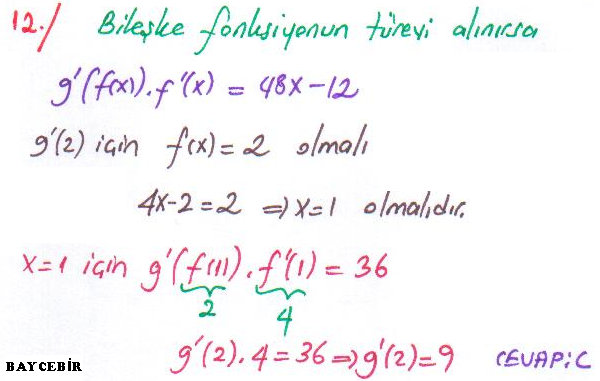 12./ Bileşke fonksiyonun türevi alınırsa
g'(f(x)).f'(x) = 48x-12
g'(2) için f(x)=2 olmalı
4x-2=2 ⇒ x=1 olmalıdır.
x=1 için g'(f(1)).f'(1) = 36
2 4
g'(2).4=36 ⇒ g'(2)=9 CEVAP:C
BAYCEBİR